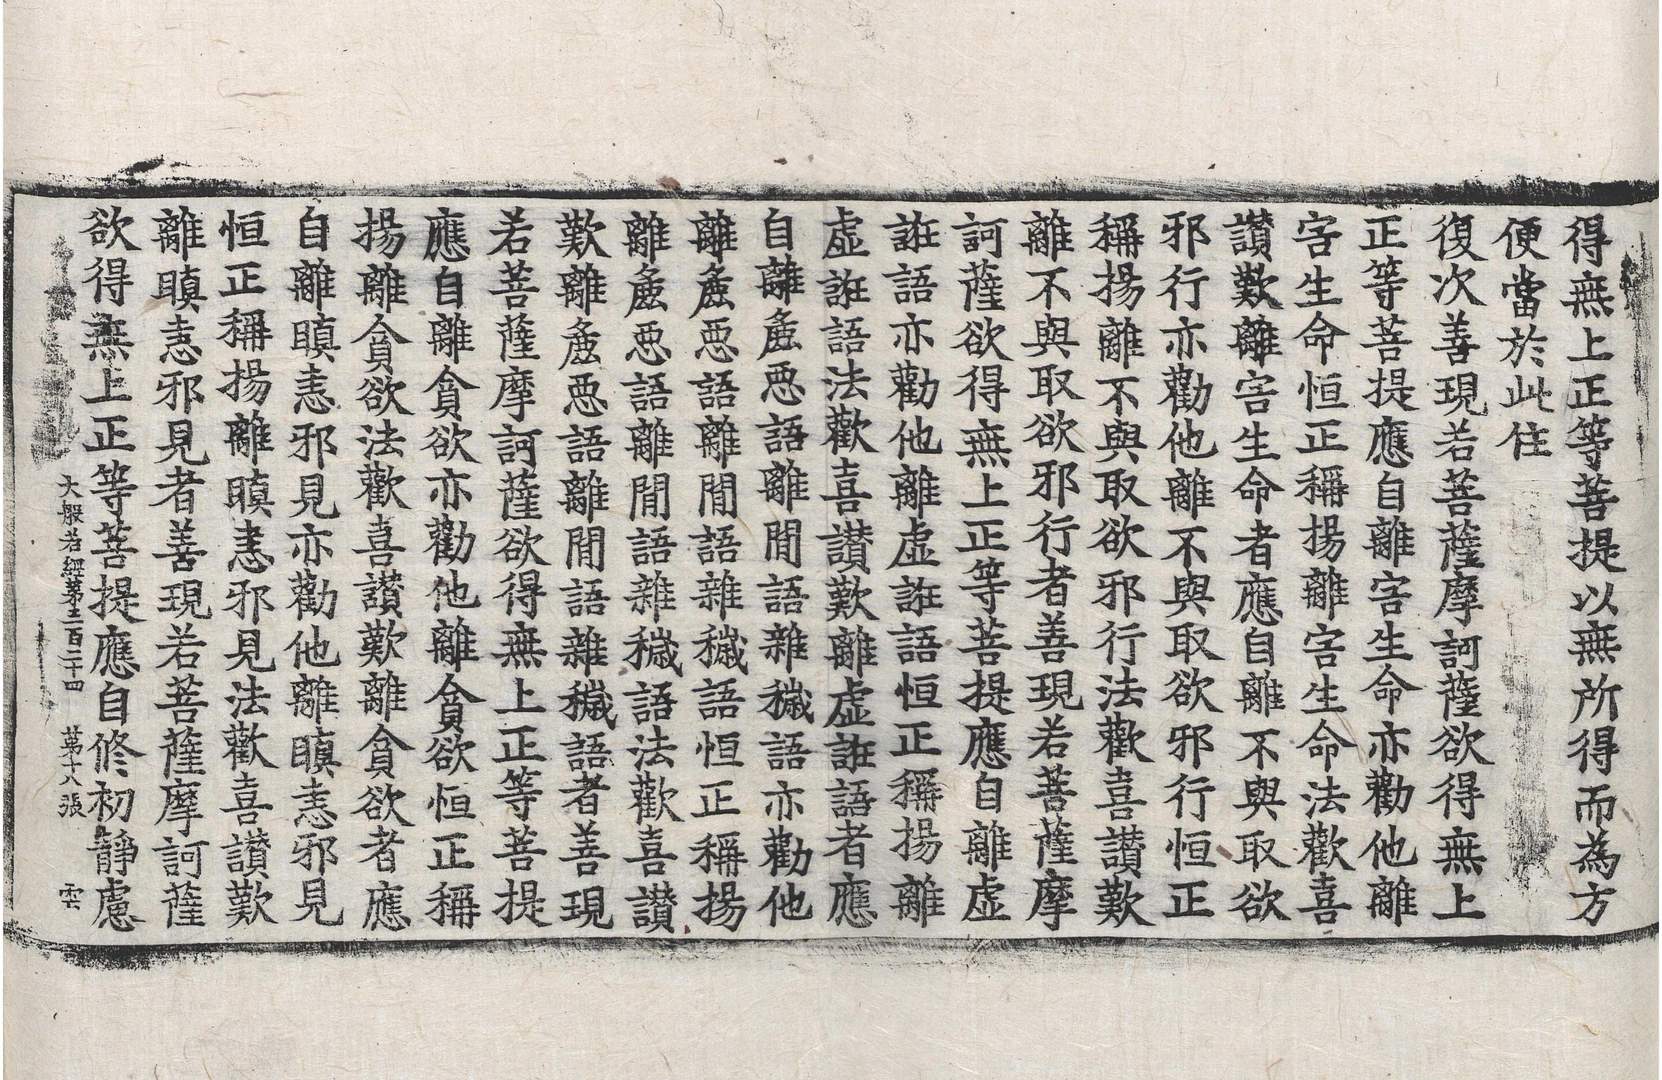 得無上正等菩提以無所得而為方
便當於此住
復次善現若菩薩摩訶薩欲得無上
正等菩提應自離害生命亦勸他離
害生命恒正稱揚離害生命法歡喜
讚歎離害生命者應自離不與取欲
邪行亦勸他離不與取欲邪行恒正
稱揚離不與取欲邪行法歡喜讚歎
離不與取欲邪行者善現若菩薩摩
訶薩欲得無上正等菩提應自離虛
誑語亦勸他離虛誑語恒正稱揚離
虛誑語法歡喜讚歎離虛誑語者應
自離麁惡語離間語雜穢語亦勸他
離麁惡語離間語雜穢語恒正稱揚
離麁惡語離間語雜穢語法歡喜讚
歎離麁惡語離間語雜穢語者善現
若菩薩摩訶薩欲得無上正等菩提
應自離貪欲亦勸他離貪欲恒正稱
揚離貪欲法歡喜讚歎離貪欲者應
自離瞋恚邪見亦勸他離瞋恚邪見
恒正稱揚離瞋恚邪見法歡喜讚歎
離瞋恚邪見者善現若菩薩摩訶薩
欲得無上正等菩提應自修初靜慮
大般若經第三百二十四 第十八張 雲